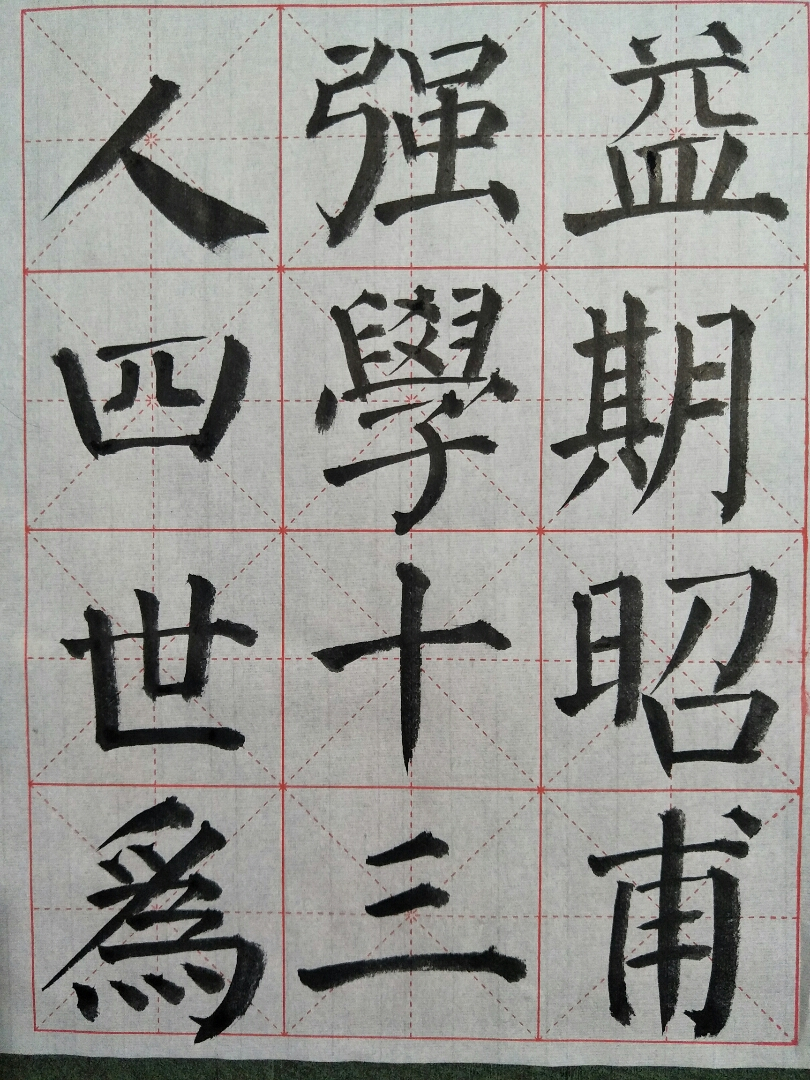 益期昭甫
强學十三
人四世爲